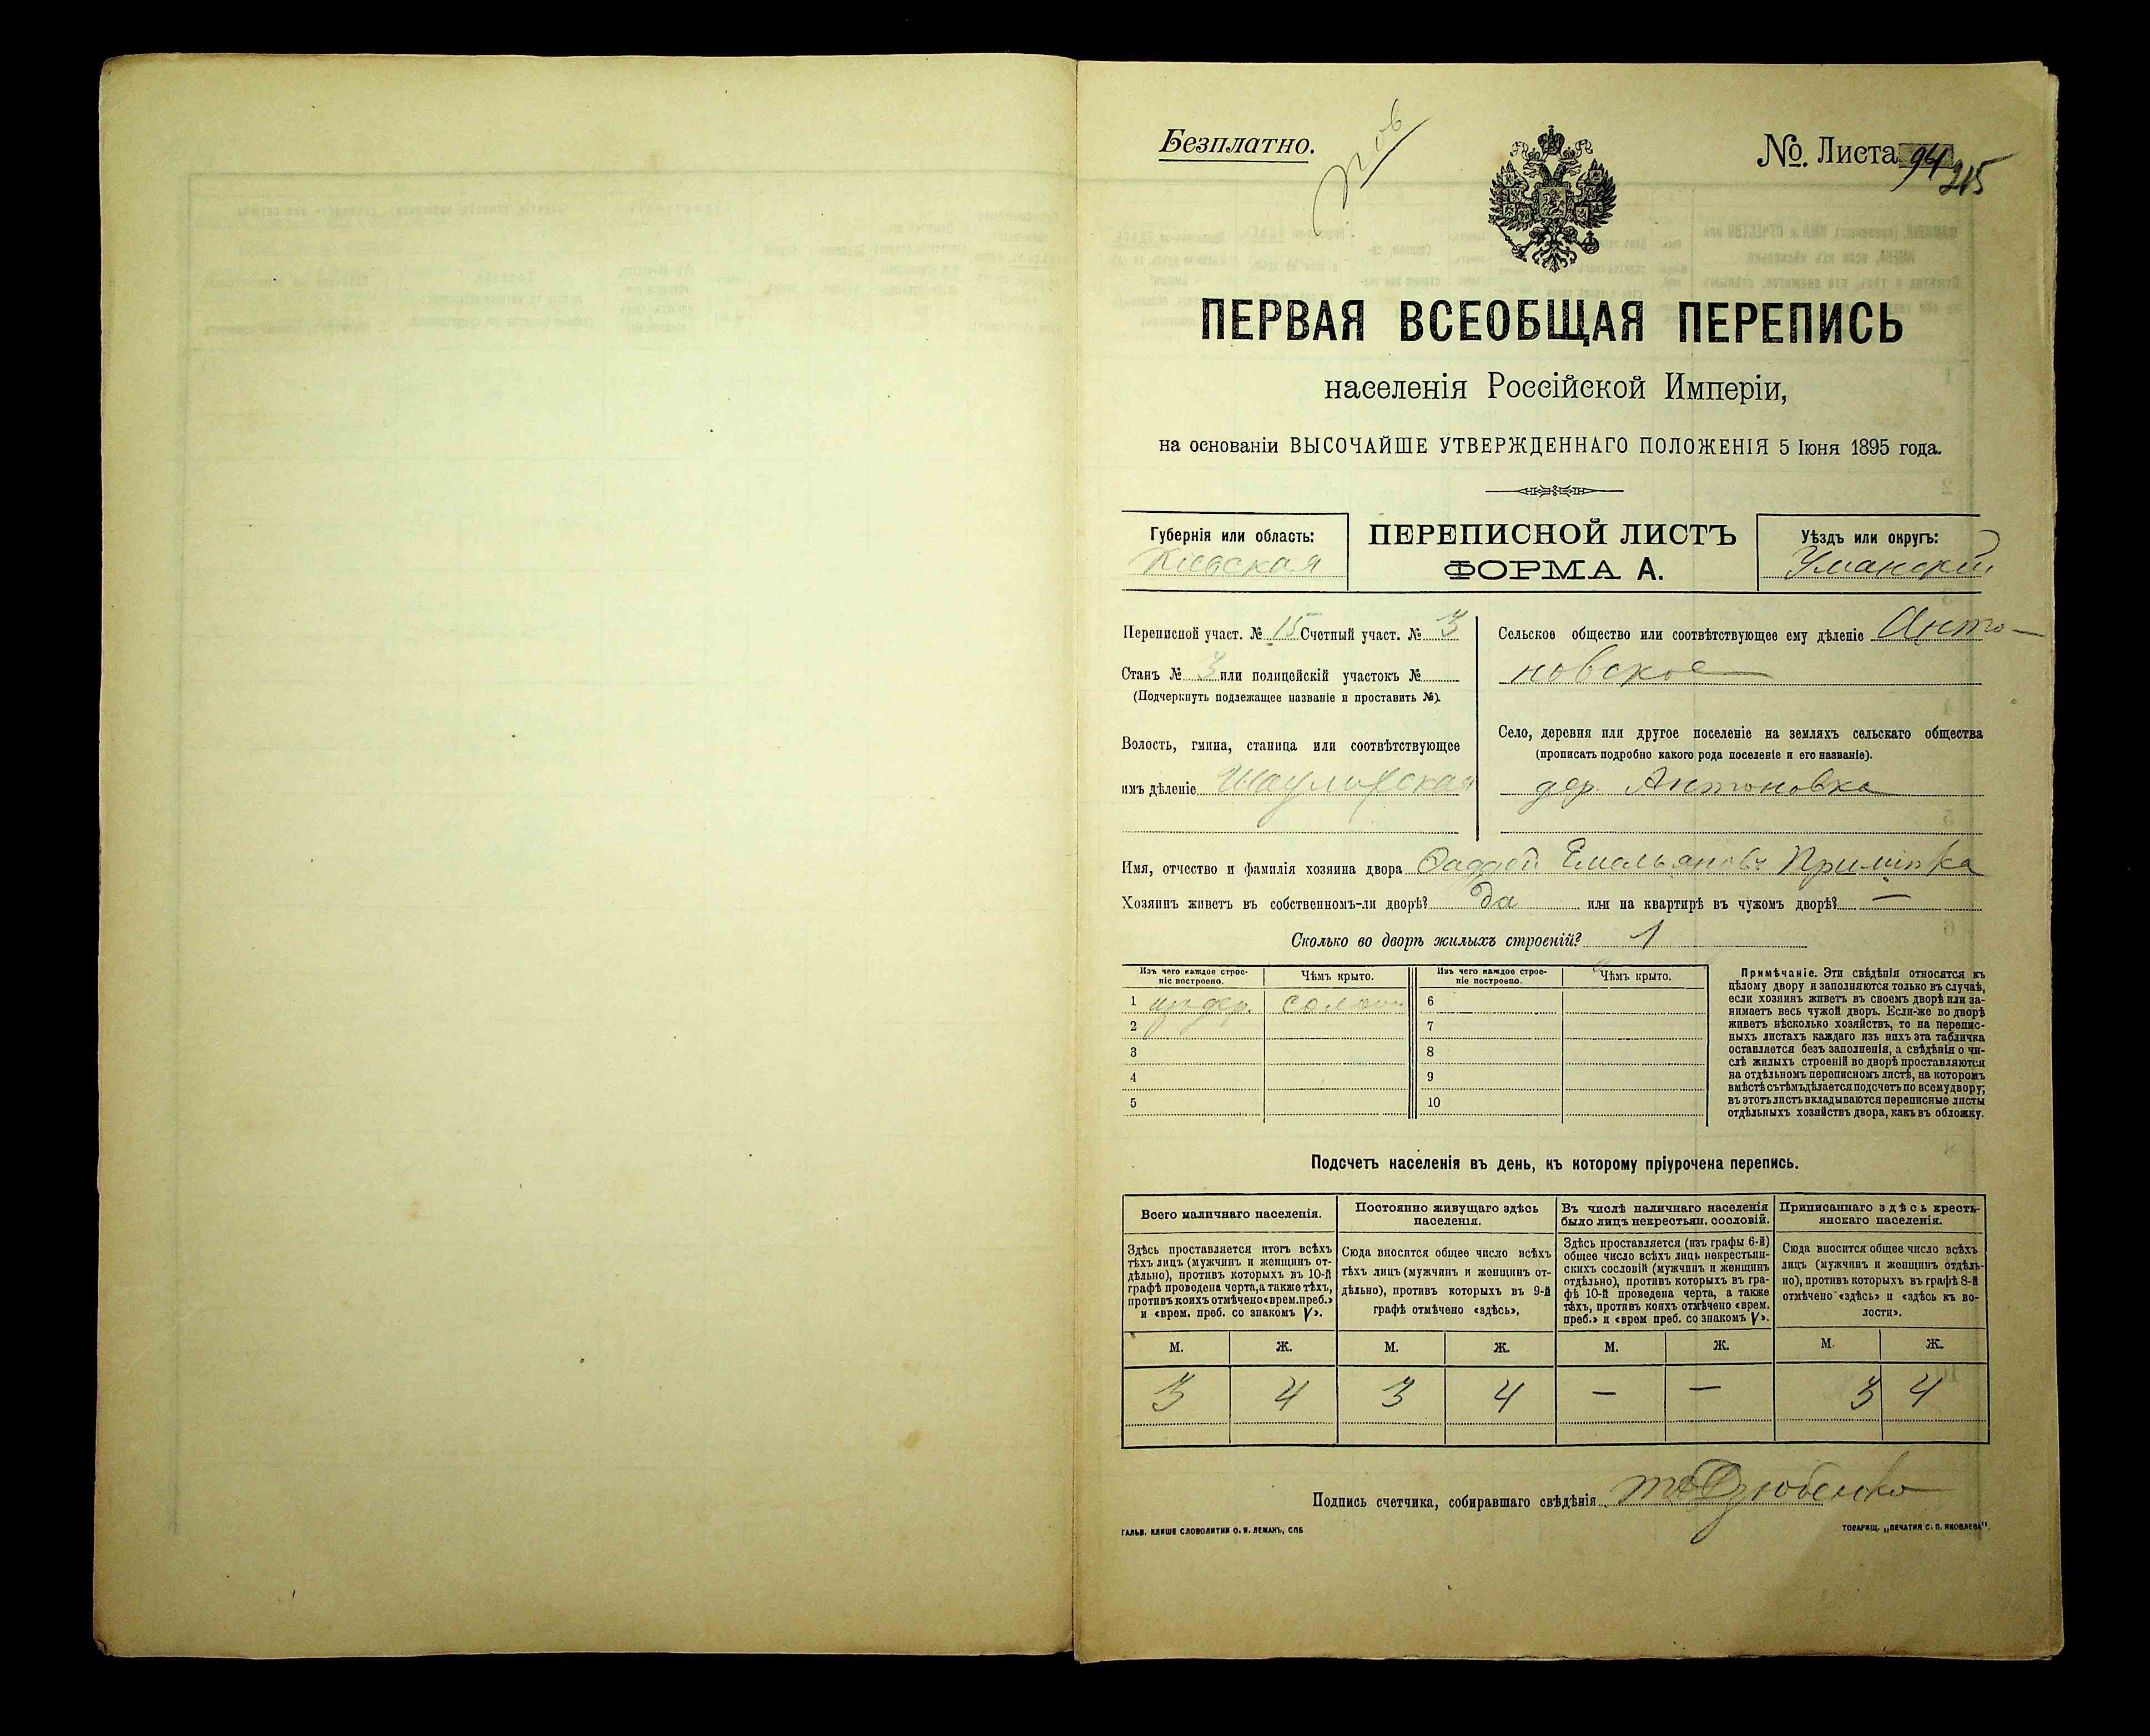 Безплатно.
№ Листа 94 215
ПЕРВАЯ ВСЕОБЩАЯ ПЕРЕПИСЬ
населенія Россійской Имперіи,
на основаніи ВЫСОЧАЙШЕ УТВЕРЖДЕННАГО ПОЛОЖЕНІЯ 5 Іюня 1895 года.
Губернія или область:
Кіевская
ПЕРЕПИСНОЙ ЛИСТЪ
ФОРМА А.
Уѣздъ или округъ:
Уманскій
Переписной участ. № 15 Счетный участ. № 3
Станъ № 3 или полицейскій участокъ №
(Подчеркнуть подлежащее названіе и проставить №).
Волость, гмина, станица или соотвѣтствующее
имъ дѣленіе
Сельское общество или соотвѣтствующее ему дѣленіе Анто-
новское
Село, деревня или другое поселеніе на земляхъ сельскаго общества
(прописать подробно какого рода поселеніе и его названіе).
дер. Антоновка
Имя, отчество и фамилія хозяина двора Фаддей Емельяновъ
Хозяинъ живетъ въ собственномъ-ли дворѣ? Да или на квартирѣ въ чужомъ дворѣ? —
Сколько во дворѣ жилыхъ строеній? 1
Изъ чего каждое строе-
ніе построено.
Чѣмъ крыто.
Изъ чего каждое строе-
ніе построено.
Чѣмъ крыто.
1 дер. 6
2 7
3 8
4 9
5 10
Примѣчаніе. Эти свѣдѣнія относятся къ
цѣлому двору и заполняются только въ случаѣ,
если хозяинъ живетъ въ своемъ дворѣ или за-
нимаетъ весь чужой дворъ. Если-же во дворѣ
живетъ нѣсколько хозяйствъ, то на перепис-
ныхъ листахъ каждаго изъ нихъ эта табличка
оставляется безъ заполненія, а свѣдѣнія о чи-
слѣ жилыхъ строеній во дворѣ проставляются
на отдѣльномъ переписномъ листѣ, на которомъ
вмѣстѣ съ тѣмъ дѣлается подсчетъ по всему двору;
въ этотъ листъ вкладываются переписные листы
отдѣльныхъ хозяйствъ двора, какъ въ обложку.
Подсчетъ населенія въ день, къ которому пріурочена перепись.
Всего наличнаго населенія.
Постоянно живущаго здѣсь
населенія.
Въ числѣ наличнаго населенія
было лицъ некрестьян. сословій.
Приписаннаго здѣсь кресть-
янскаго населенія.
Здѣсь проставляется итогъ всѣхъ
тѣхъ лицъ (мужчинъ и женщинъ от-
дѣльно), противъ которыхъ въ 10-й
графѣ проведена черта, а также тѣхъ,
противъ коихъ отмѣчено «врем. преб.»
и «врем. преб. со знакомъ V».
Сюда вносится общее число всѣхъ
тѣхъ лицъ (мужчинъ и женщинъ от-
дѣльно), противъ которыхъ въ 9-й
графѣ отмѣчено «здѣсь».
Здѣсь проставляется (изъ графы 6-й)
общее число всѣхъ лицъ некрестьян-
скихъ сословій (мужчинъ и женщинъ
отдѣльно), противъ которыхъ въ гра-
фѣ 10-й проведена черта, а также
тѣхъ, противъ коихъ отмѣчено «врем.
преб.» и «врем преб. со знакомъ V».
Сюда вносится общее число всѣхъ
лицъ (мужчинъ и женщинъ отдѣль-
но), противъ которыхъ въ графѣ 8-й
отмѣчено «здѣсь» и «здѣсь къ во-
лости».
М. Ж. М. Ж. М. Ж. М. Ж.
3 4 3 4 — — 3 4
Подпись счетчика, собиравшаго свѣдѣнія Дзюбенко
ГАЛЬВ. КЛИШЕ СЛОВОЛИТНИ О. И. ЛЕМАНЪ, СПБ
ТОВАРИЩ. „ПЕЧАТНЯ С. П. ЯКОВЛЕВА".